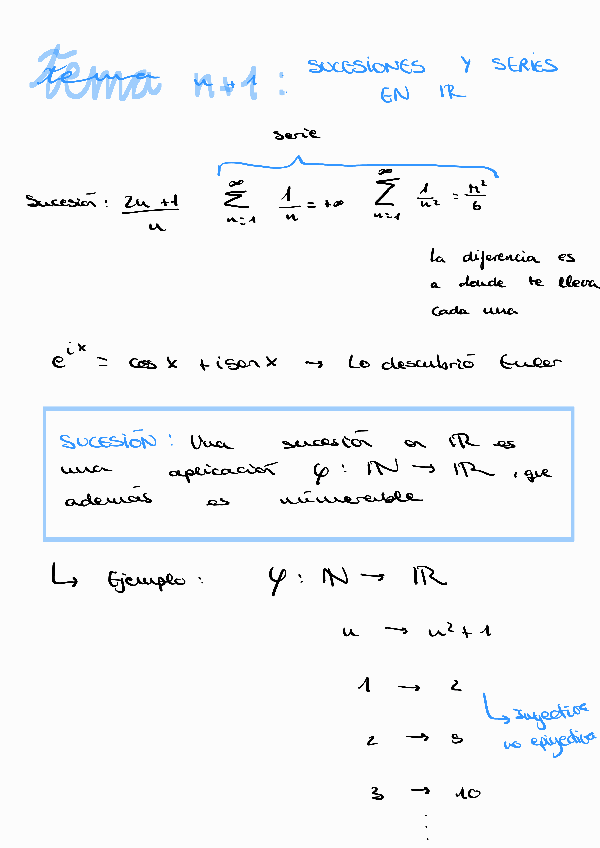 tema n+1: SUCESIONES Y SERIES
EN ℝ
serie
Sucesión: (2n+1)/n ∑_{n=1}^{∞} 1/n = +∞ ∑_{n=1}^{∞} 1/n² = π²/6
La diferencia es
a donde te lleva
cada una
e^{ix} = cos x + i sen x → Lo descubrió Euler
SUCESIÓN: Una sucesión en ℝ es
una aplicación φ: ℕ → ℝ, que
además es númerable
↳ Ejemplo: φ: ℕ → ℝ
n → n²+1
1 → 2
↳ Inyectiva
2 → 5
no epiyectiva
3 → 10
⋮